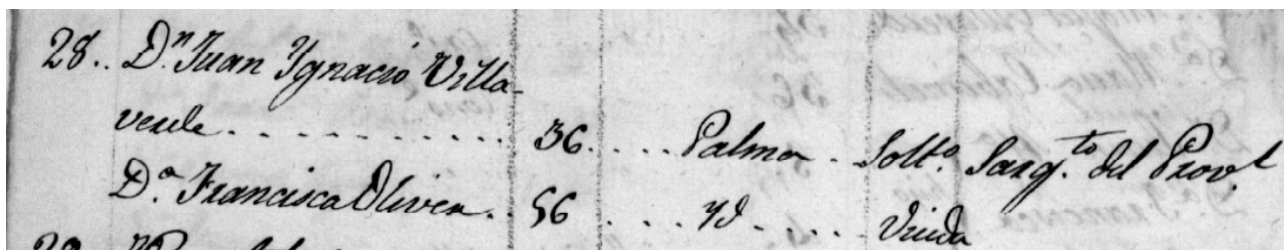 28.. Dn. Juan Ygnacio Villa-
verde . . . . . . . . . . . 36. . . . Palma . Soltº. Sargto. del Provl.
Dª. Francisca Oliver . . 56 . . . . Yd . . . . . Viuda